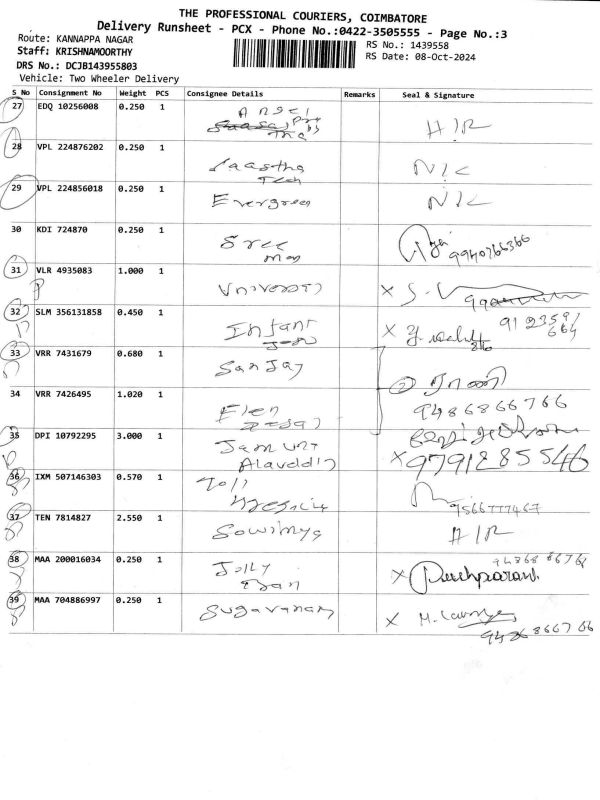 THE PROFESSIONAL COURIERS, COIMBATORE
Delivery Runsheet - PCX - Phone No.:0422-3505555 - Page No.:3
Route: KANNAPPA NAGAR
RS No.: 1439558
Staff: KRISHNAMOORTHY
RS Date: 08-Oct-2024
DRS No.: DCJB143955803
Vehicle: Two Wheeler Delivery
S No Consignment No Weight PCS Consignee Details Remarks Seal & Signature
27 EDQ 10256008 0.250 1 Angel
28 VPL 224876202 0.250 1 Saastha Tech N/C
29 VPL 224856018 0.250 1 Evergreen N/C
30 KDI 724870 0.250 1 Sree 9940766366
31 VLR 4935083 1.000 1 University X
32 SLM 356131858 0.450 1 Infant X
33 VRR 7431679 0.680 1 Sanjay
34 VRR 7426495 1.020 1 Elen 2 ராணி 9486866766
35 DPI 10792295 3.000 1 Jamuna Alauddin X 9791285546
36 IXM 507146303 0.570 1 9566777467
37 TEN 7814827 2.550 1 Sowmya
38 MAA 200016034 0.250 1 Jolly X
39 MAA 704886997 0.250 1 Sugavanam X